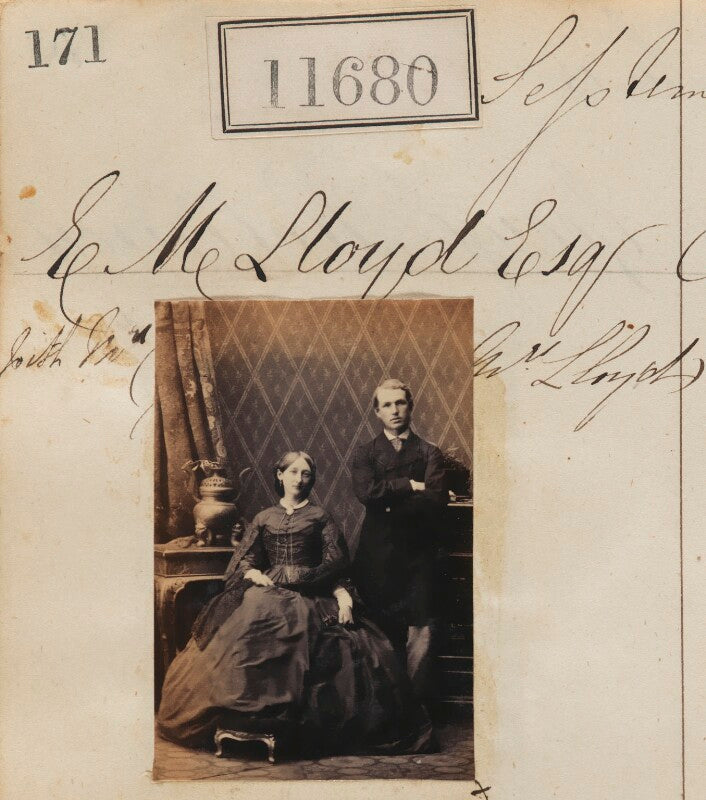 171
11680
Septem
E M Lloyd Esq
with Mrs Lloyd)